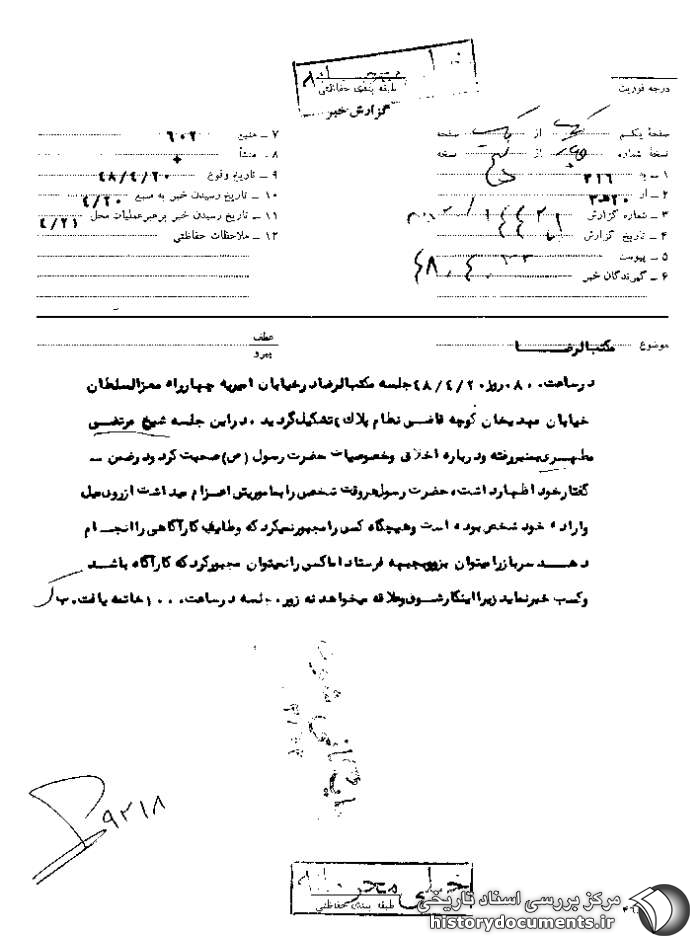 خیلی محرمانه
درجه فوریت
طبقه بندی حفاظتی
گزارش خبر
صفحهٔ یکم از یک صفحه
۷ ـ منبع ۶۰۲
نسخهٔ شماره از نسخه
۸ ـ منشأ
۱ ـ به ۳۱۶
۹ ـ تاریخ وقوع ۴۸/۴/۲۰
۲ ـ از ۲۰ه۳
۱۰ ـ تاریخ رسیدن خبر به منبع ۴/۲۰
۳ ـ شماره گزارش
۱۱ ـ تاریخ رسیدن خبر برهبرعملیات محل ۴/۲۱
۴ ـ تاریخ گزارش
۱۲ ـ ملاحظات حفاظتی
۵ ـ پیوست
۶ ـ گیرندگان خبر
موضوع مکتب الرضا
عطف
پیرو
در ساعت ۰۸۰۰ روز ۴۸/۴/۲۰ جلسه مکتب الرضا در خیابان امیریه چهارراه معزالسلطان
خیابان مهدیخان کوچه قاضی نظام پلاک تشکیل گردید . در این جلسه شیخ مرتضی
مطهری بمنبر رفته و درباره اخلاق وخصوصیات حضرت رسول (ص) صحبت کرد و در ضمن
گفتار خود اظهار داشت ، حضرت رسول هر وقت شخصی را بماموریتی اعزام میداشت از روی میل
و اراده خود شخص بوده است وهیچگاه کسی را مجبور نمیکرد که وظایف کارآگاهی را انجام
دهد سرباز را میتوان بزور بجبهه فرستاد اما کسی را نمیتوان مجبور کرد که کارآگاه باشد
وکسب خبر نماید زیرا اینکار شوق وعلاقه میخواهد نه زور . جلسه در ساعت ۱۰۰۰ خاتمه یافت .
۹۲۱۸
خیلی محرمانه
طبقه بندی حفاظتی
مرکز بررسی اسناد تاریخی
historydocuments.ir